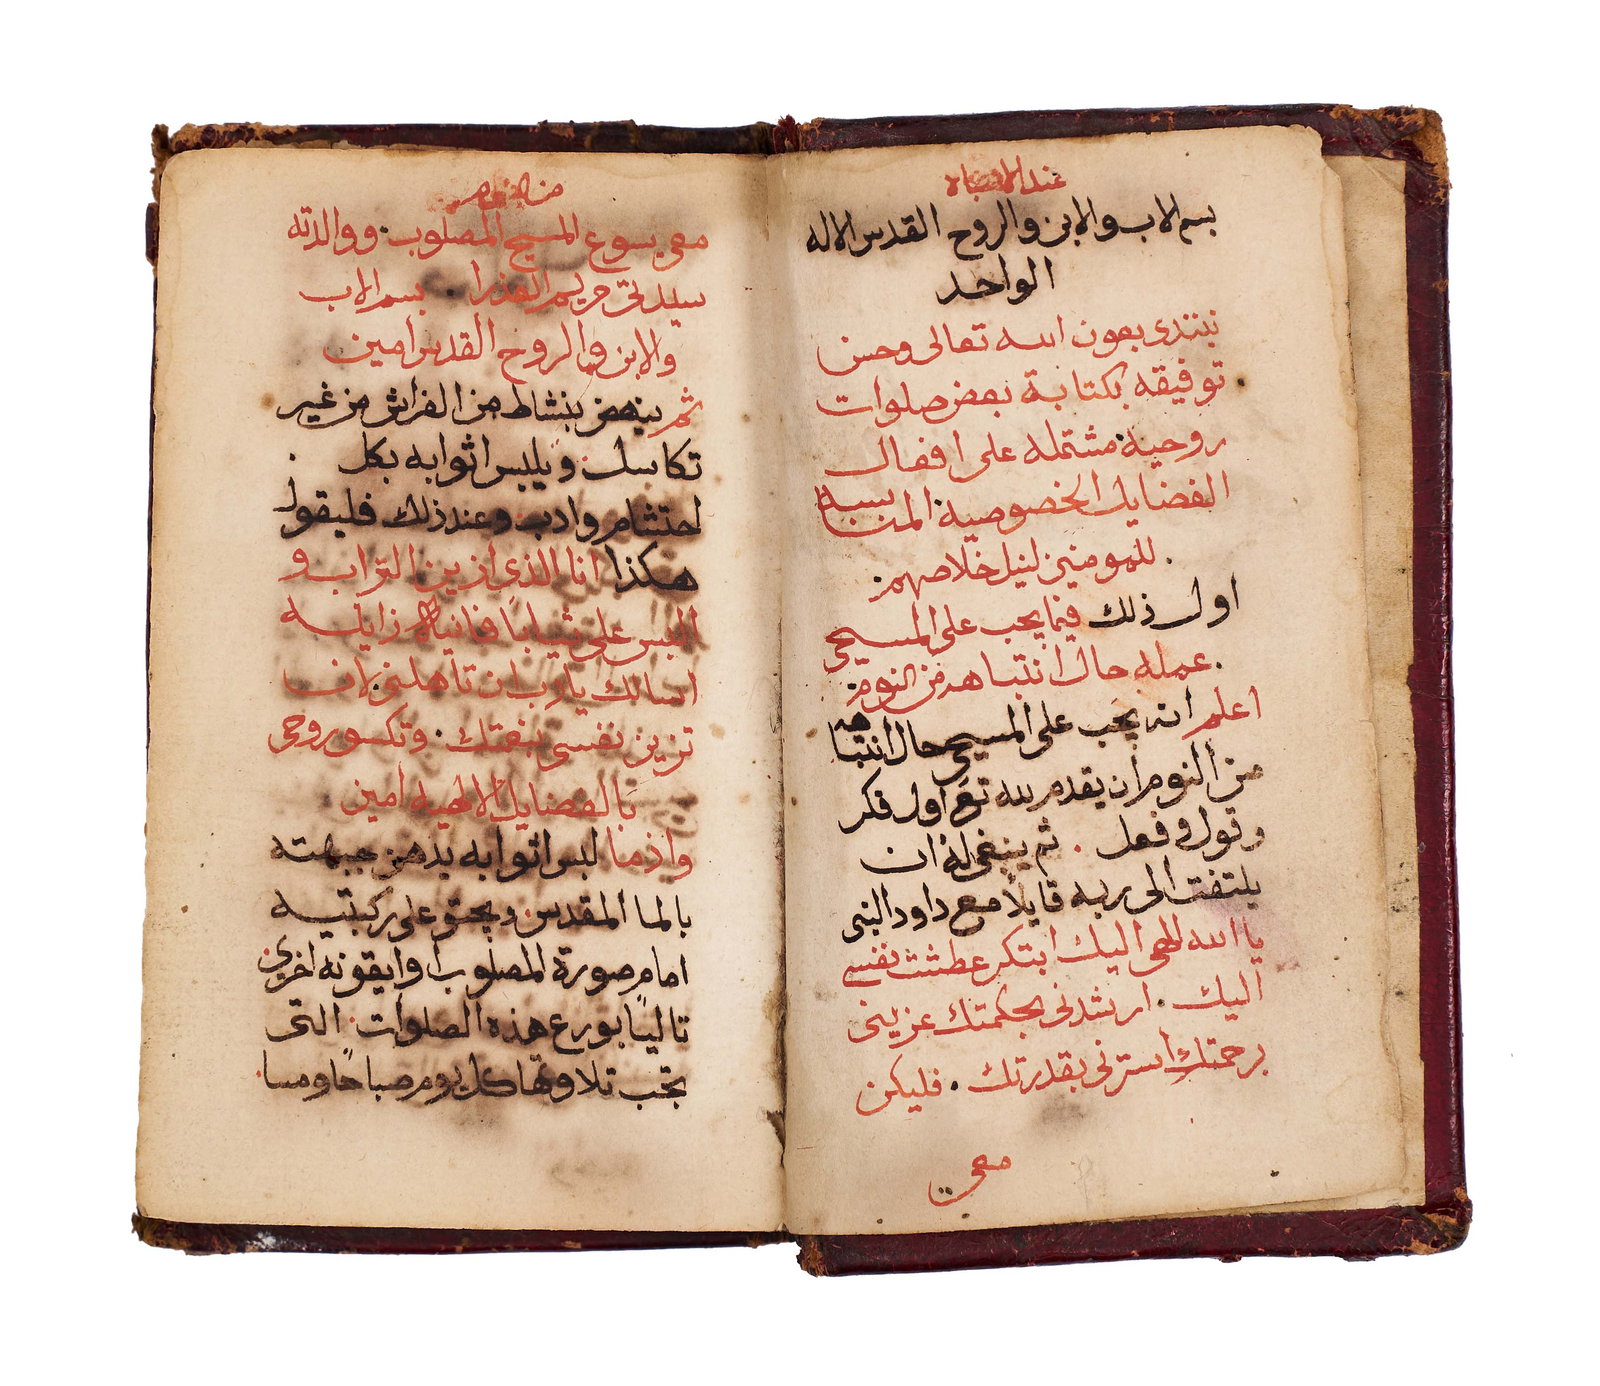 عند الانتباه
بسم الاب والابن والروح القدس الاله
الواحد
نبتدى بعون الله تعالى وحسن
توفيقه بكتابة بعض صلوات
روحية مشتمله على افعال
الفضايل الخصوصية المناسبه
للمومنين لنيل خلاصهم
اول ذلك فيما يجب على المسيحى
عمله حال انتباهه من النوم
اعلم انه يجب على المسيحى حال انتباهه
من النوم ان يقدم لله تع اول فكر
وقول وفعل . ثم ينبغى له ان
يلتفت الى ربه قايلاً مع داود النبى
يا الله الهى اليك ابتكر عطشت نفسى
اليك . ارشدنى بحكمتك عزينى
برحمتك استرنى بقدرتك . فليكن
معى
من النوم
معى يسوع المسيح المصلوب . ووالدته
سيدتى مريم العذرا . بسم الاب
والابن والروح القدس امين
ثم ينهض بنشاط من الفراش من غير
تكاسل . ويلبس اثوابه بكل
احتشام وادب وعند ذلك فليقول
هكذا انا الذى ازين التراب و
البس على ثياباً فانيه زايله
اسالك يارب ان تاهلنى لان
تزين نفسى بنعمتك . وتكسو روحى
بالفضايل الالهيه امين
واذما لبس اثوابه يدهن جبهته
بالما المقدس ويجثو على ركبتيه
امام صورة المصلوب او ايقونه اخرى
تالياً بورع هذه الصلوات التى
تجب تلاوتها كل يوم صباحاً ومسا .